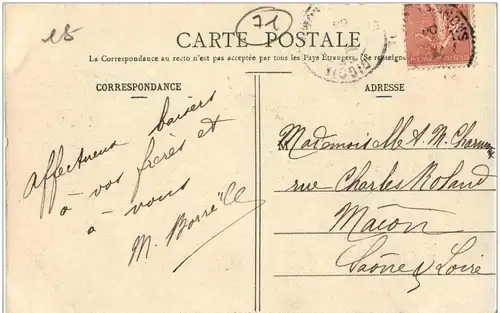 15
71
CARTE POSTALE
La Correspondance au recto n'est pas acceptée par tous les Pays Étrangers. (Se renseigner
CORRESPONDANCE
ADRESSE
Affectueux baisers
à vos frères et
à vous
M.
Mademoiselle A. M.
rue Charles Roland
Mâcon
Saône & Loire
DIGOIN